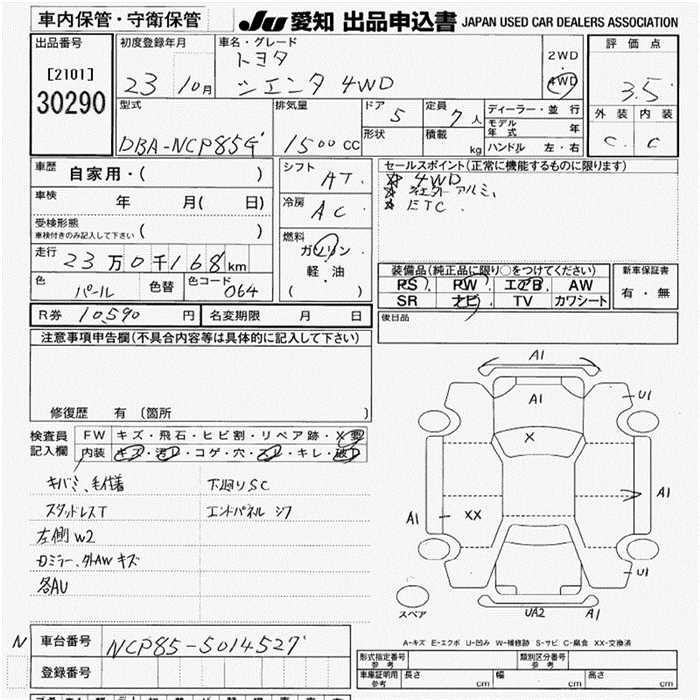 車内保管・守衛保管 JU 愛知 出品申込書 JAPAN USED CAR DEALERS ASSOCIATION
出品番号 初度登録年月 車名・グレード 評価点
トヨタ 2WD
[2101] 23 10月 シエンタ 4WD 4WD 3.5
30290 型式 排気量 ドア 5 定員 7人 ディーラー・並行 外装 内装
モデル年式 年
形状 積載 kg ハンドル 左・右 C C
DBA-NCP85G 1500cc
車歴 自家用・( ) シフト AT セールスポイント(正常に機能するものに限ります)
☆ 4WD
車検 年 月( 日) 冷房 AC ☆ アルミ
☆ ETC
受検形態 ( )
車検付きのみ記入して下さい
燃料 ガソリン
走行 23万0千168km 軽・油
( )
装備品(純正品に限り○をつけてください) 新車保証書
色 パール 色替 色コード 064 PS PW エアB AW 有・無
SR ナビ TV カワシート
R券 10,590円 名変期限 月 日 後日品
注意事項申告欄(不具合内容等は具体的に記入して下さい)
修復歴 有(箇所 )
検査員記入欄 FW キズ・飛石・ヒビ割・リペア跡・X要
内装 キズ・汚レ・コゲ・穴・スレ・キレ・破レ
キバミ、毛付着 下廻りSC
スタッドレスT エンドパネル シワ
左側W2
Dミラー、外AWキズ
各AU
A1
A1 U1
X
A1
A1 XX
U1
スペア UA2 A1
A-キズ E-エクボ U-凹み W-補修跡 S-サビ C-腐食 XX-交換済
N 車台番号 NCP85-5014527
登録番号
形式指定番号 参考 類別区分番号 参考
車庫証明用 参考 長さ cm 幅 cm 高さ cm